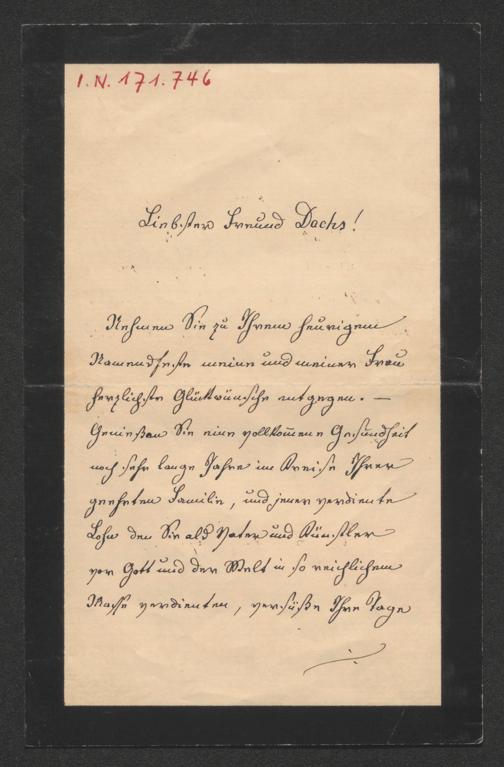 I.N. 171.746
Liebster Freund Dachs!
Nehmen Sie zu Ihrem heurigem
Namensfeste meine und meiner Frau
herzlichste Glückwünsche entgegen. —
Genießen Sie eine vollkom̅ene Gesundheit
noch sehr lange Jahre im Kreise Ihrer
geehrten Familie, und jener verdiente
Lohn den Sie als Vater und Künstler
vor Gott und der Welt in so reichlichem
Masse verdienten, versüße Ihre Tage